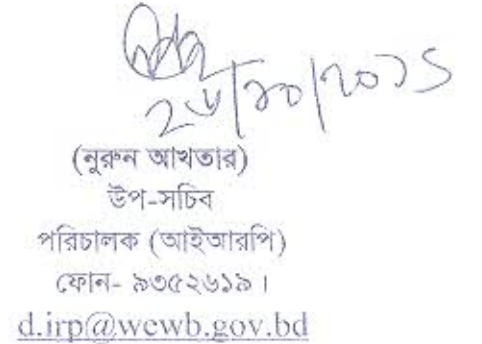 (নুরুন আখতার)
উপ-সচিব
পরিচালক (আইআরপি)
ফোন- ৯৩৫২৬১৯।
d.irp@wewb.gov.bd